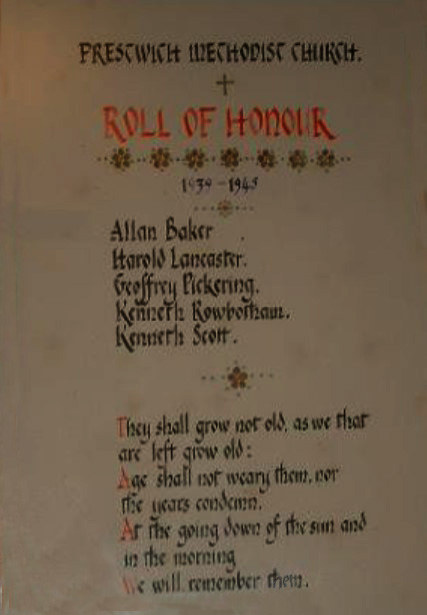 PRESTWICH METHODIST CHURCH.
ROLL OF HONOUR
1939-1945
Allan Baker
Harold Lancaster.
Geoffrey Pickering.
Kenneth Rowbotham.
Kenneth Scott.
They shall grow not old, as we that
are left grow old:
Age shall not weary them, nor
the years condemn.
At the going down of the sun and
in the morning
We will remember them.